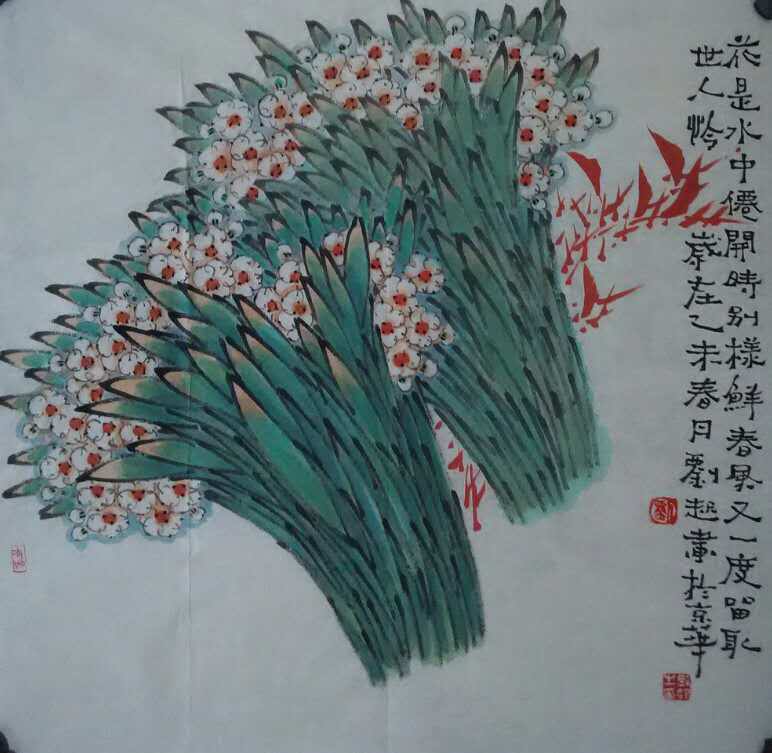 花是水中僊開時别樣鮮春風又一度留取
世人怜 歲在乙未春月劉起畫於京華
劉